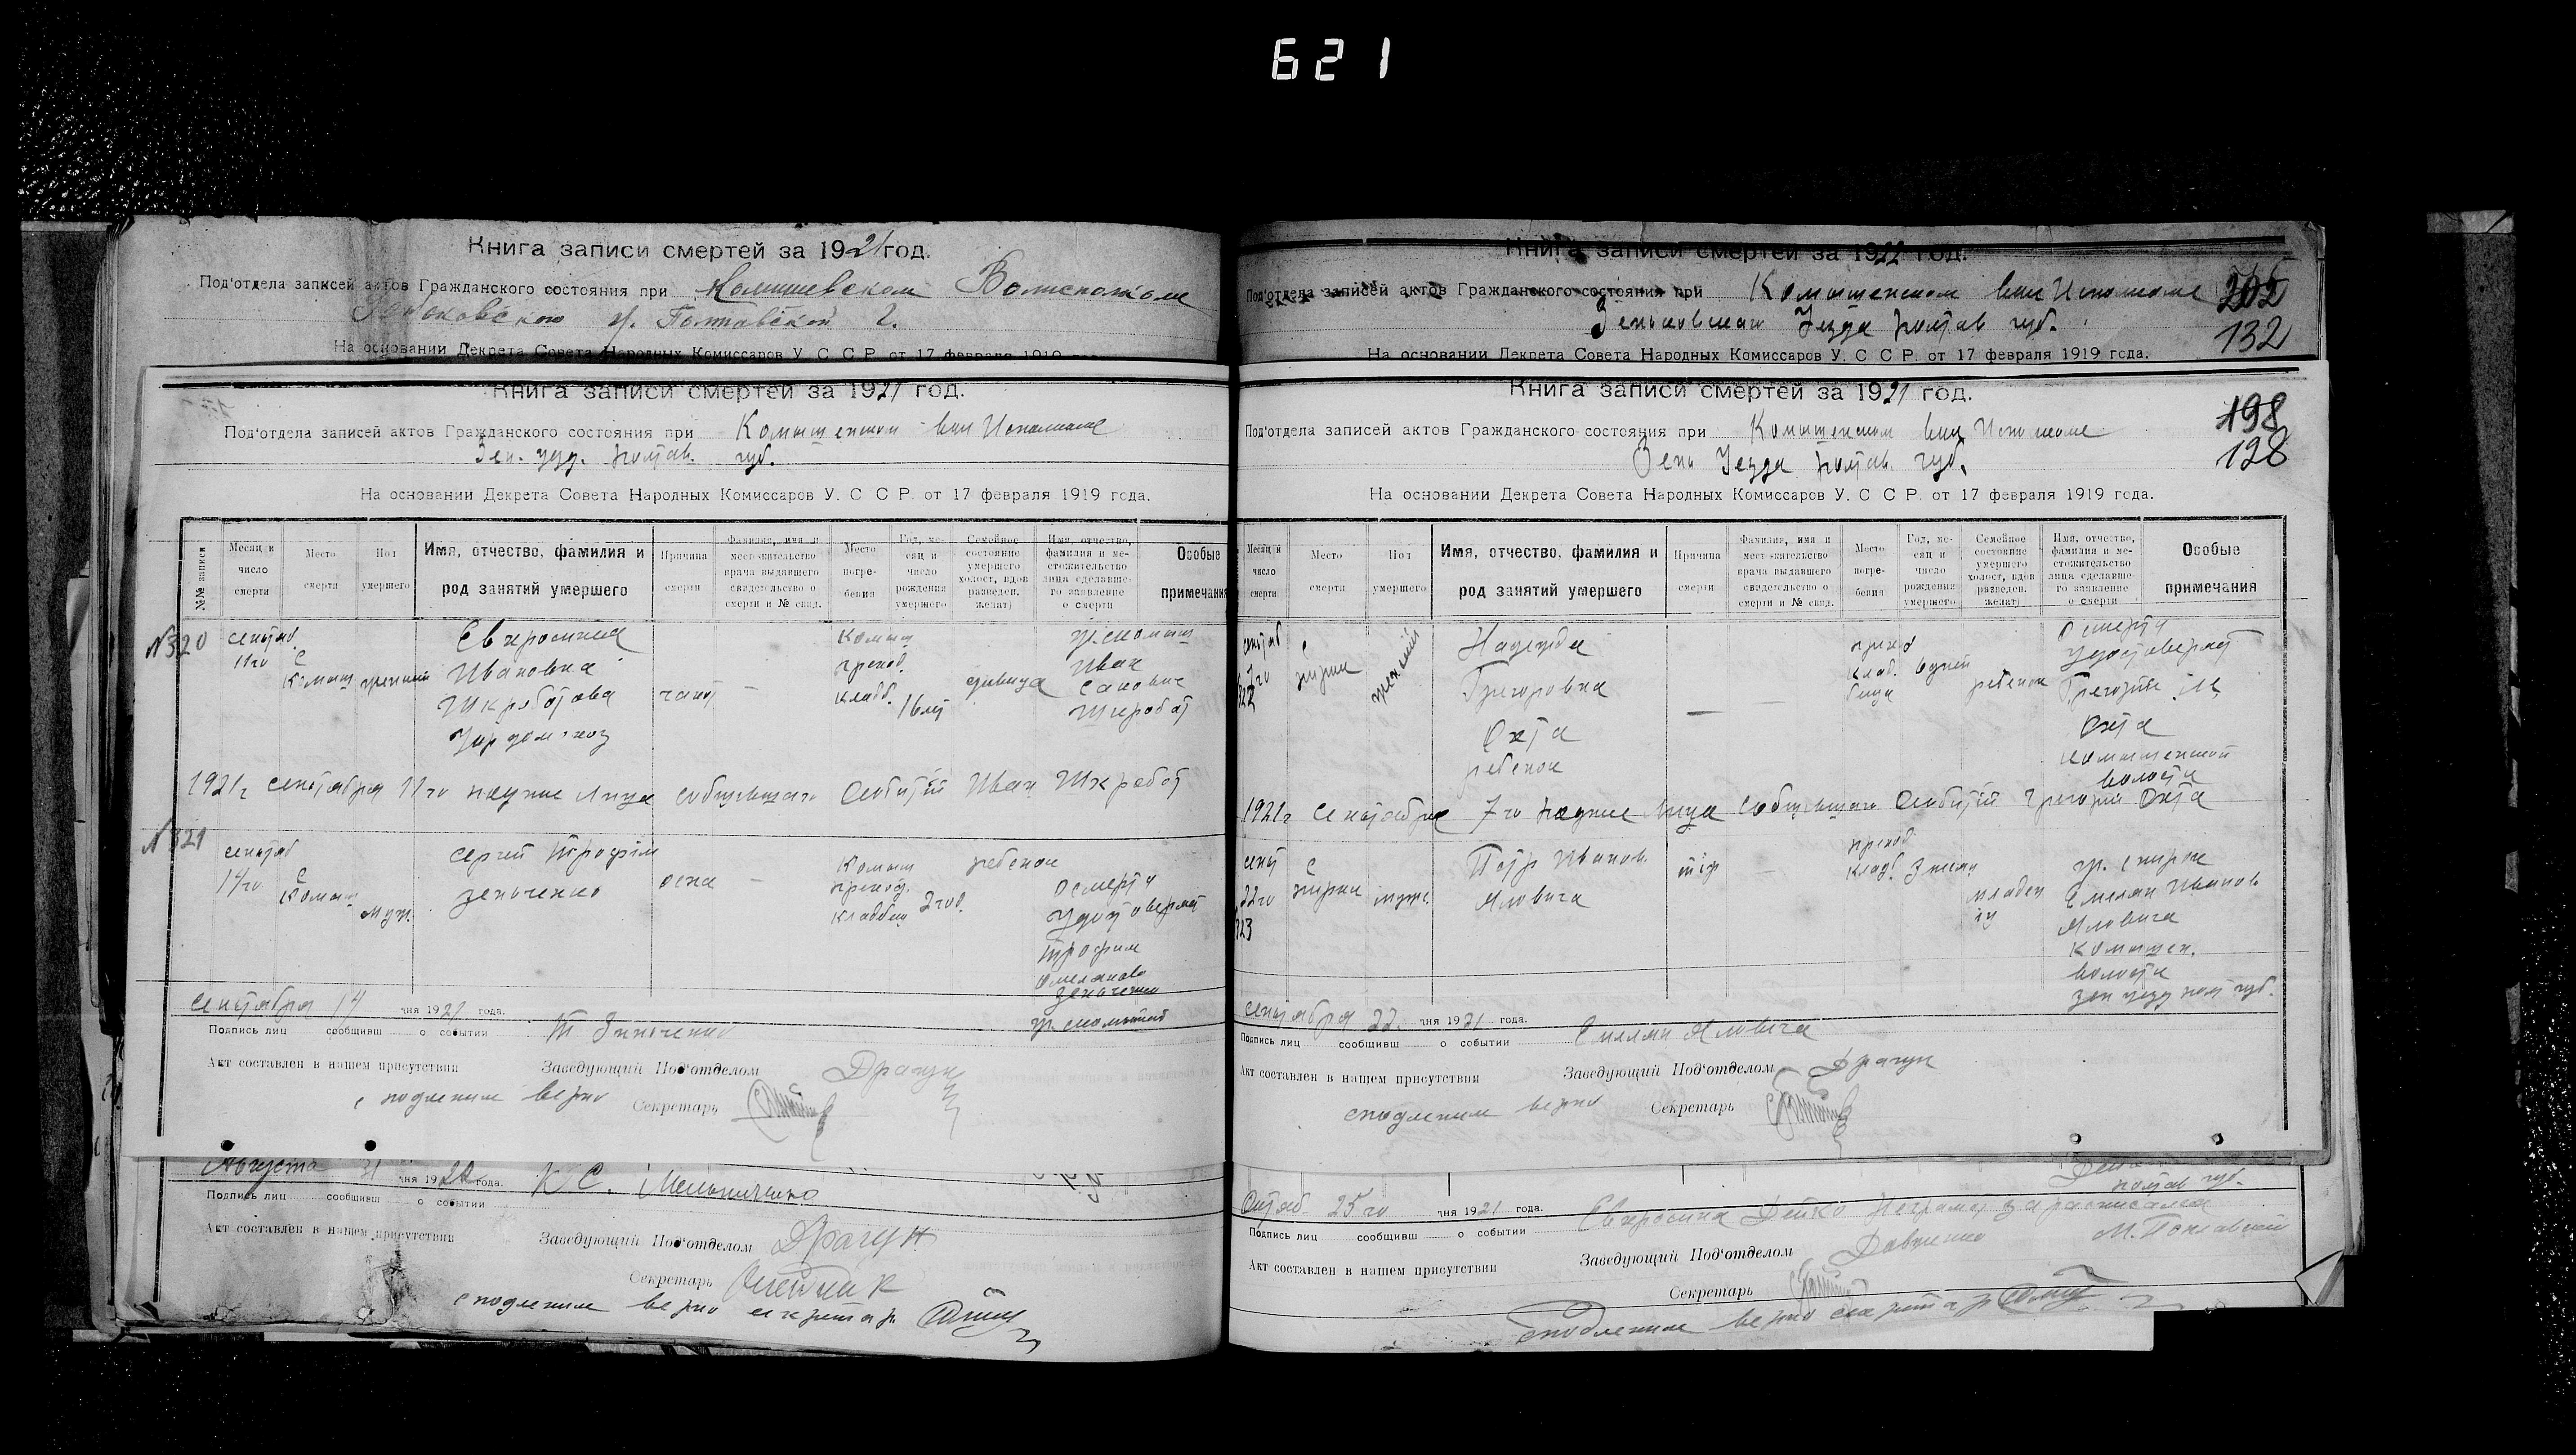 621
Книга записи смертей за 1921 год.
Под'отдела записей актов Гражданского состояния при Комишевском Волисполкоме
Полтавской г.
На основании Декрета Совета Народных Комиссаров У С С Р от 17 февраля 1919
Книга записи смертей за 1921 год.
Под'отдела записей актов Гражданского состояния при Комышенском
Зен. уез. Полтав. губ.
На основании Декрета Совета Народных Комиссаров У. С С Р. от 17 февраля 1919 года.
№№ записи
Месяц и число смерти
Место смерти
Пол умершего
Имя, отчество, фамилия и род занятий умершего
Причина смерти
Фамилия, имя и местожительство врача выдавшего свидетельство о смерти и № свид.
Место погребения
Год, месяц и число рождения умершего
Семейное состояние умершего холост, вдов разведен. женат)
Имя, отчество, фамилия и местожительство лица сделавшего заявление о смерти
Особые примечания
№320
сентяб. 11го
с Комыш
женский
Евхросиния
Ивановна
Шкработова
чахот
—
Комыш
приход.
кладб.
16 лет
девица
Иван
Савович
Шкработ
1921г сентября 11го подпис лица сообщившаго Событий Иван Шкработ
№321
сентяб
14го
с
Комыш
муж.
Сергей Трофим
Зеньченко
оспа
—
Комыш
приход.
кладбищ
2 год.
ребенок
О смерти
удостоверяет
Трофим
Зеньченко
сентября 14 дня 1921 года.
Подпись лиц сообщивш о событии
Т Зинченко
Акт составлен в нашем присутствии
Заведующий Под'отделом Драгун
с подленим верно
Секретарь
Августа 31 дня 1922 года.
К С. Мельниченко
Подпись лиц сообщивш о событии
Акт составлен в нашем присутствии
Заведующий Под'отделом Драгун
Секретарь Олейник
с подленим верно секретар
Книга записи смертей за 1922 год.
Под'отдела записей актов Гражданского состояния при Комышенском
205
Зеньковскаго Уезда Полтав губ.
132
На основании Декрета Совета Народных Комиссаров У. С С Р. от 17 февраля 1919 года.
Книга записи смертей за 1921 год.
198
Под'отдела записей актов Гражданского состояния при Комышенском
128
Зень Уезда Полтав. губ.
На основании Декрета Совета Народных Комиссаров У. С С Р. от 17 февраля 1919 года.
Месяц и число смерти
Место смерти
Пол умершего
Имя, отчество, фамилия и род занятий умершего
Причина смерти
Фамилия, имя и местожительство врача выдавшего свидетельство о смерти и № свид.
Место погребения
Год, месяц и число рождения умершего
Семейное состояние умершего холост, вдов разведен. женат)
Имя, отчество, фамилия и местожительство лица сделавшего заявление о смерти
Особые примечания
сентяб
7го
322
с
женский
Надежда
Григоровна
Охта
ребенок
—
—
приход
клад.
бища
ребенок
О смерти
удостоверяет
Григорий
Охта
Комышенской
волости
1921г сентября 7го подпис лица сообщившаго Событий Григорий Охта
сент
22го
323
с
муж.
Петр Иванов.
Яловига
тіф
—
приход
клад.
младен
Емелян Иванов
Яловига
Комышен.
волости
зен уезд пол губ.
сентября 22 дня 1921 года.
Подпись лиц сообщивш о событии
Емелян Яловига
Акт составлен в нашем присутствии
Заведующий Под'отделом Драгун
с подленим верно
Секретарь
полтав губ.
Октяб 25го дня 1921 года.
Евхросина Дейко неграмот за расписался
Подпись лиц сообщивш о событии
Заведующий Под'отделом Довженко
Акт составлен в нашем присутствии
Секретарь
с подленим верно секретар